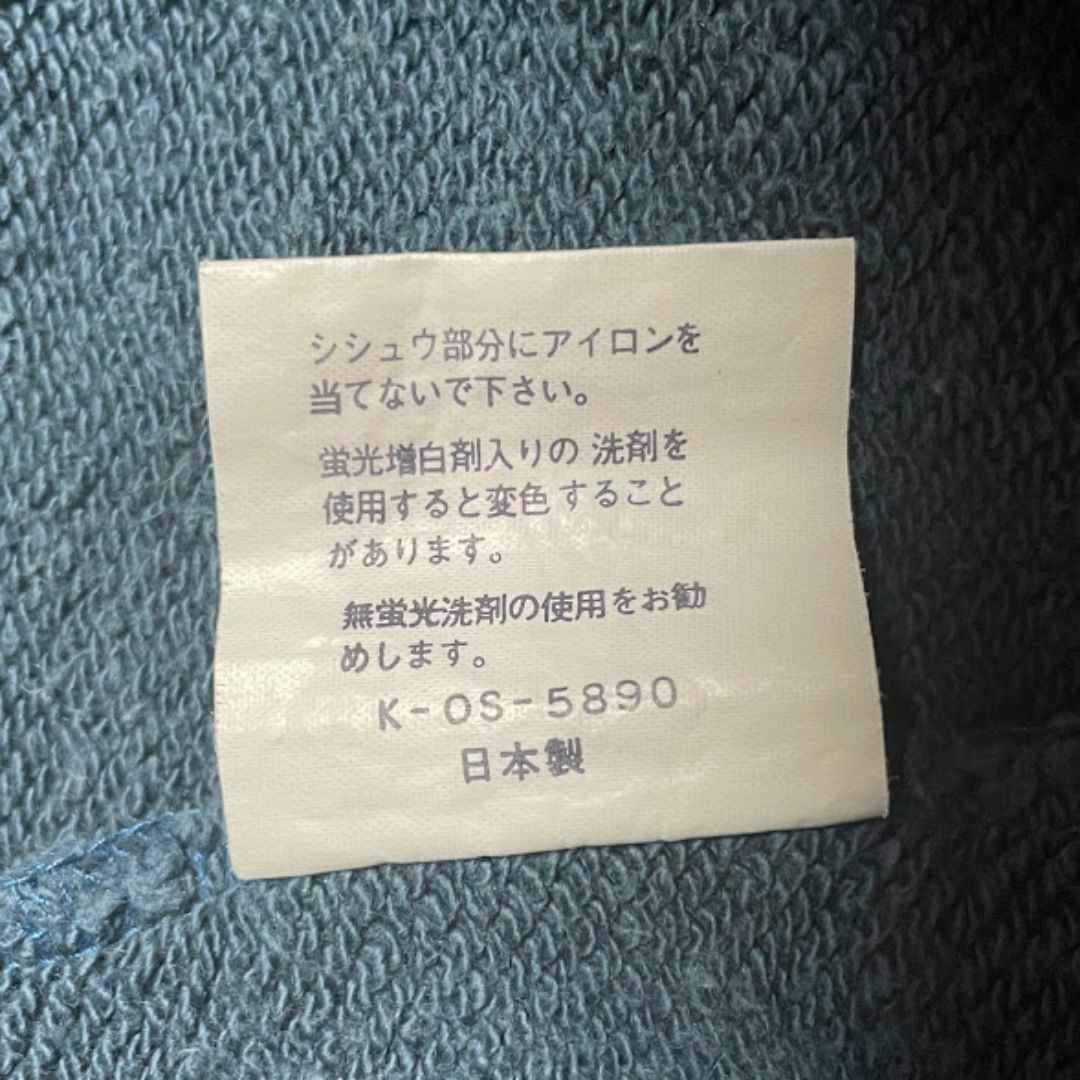 シシュウ部分にアイロンを
当てないで下さい。
蛍光増白剤入りの 洗剤を
使用すると変色すること
があります。
無蛍光洗剤の使用をお勧
めします。
K-OS-5890
日本製